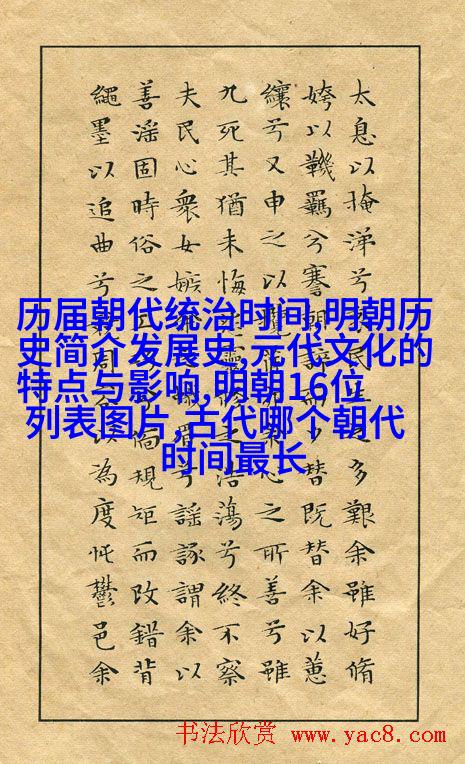 太息以掩涕兮民生之多艱余雖好脩
姱以鞿羈兮謇朝誶而夕替既替余以蕙
纕兮又申之以攬心之所善兮雖
九死其猶未悔靈脩之浩蕩兮終不察
夫民心衆女嫉眉兮謠諑謂余以
善淫固時俗之工偭規矩而改錯背
繩墨以追曲兮周容以為度忳鬱邑余
历届朝代统治时间,明朝历
史简介发展史,元代文化的
特点与影响,明朝16位
列表图片,古代哪个朝代
时间最长
书法欣赏 www.yac8.com